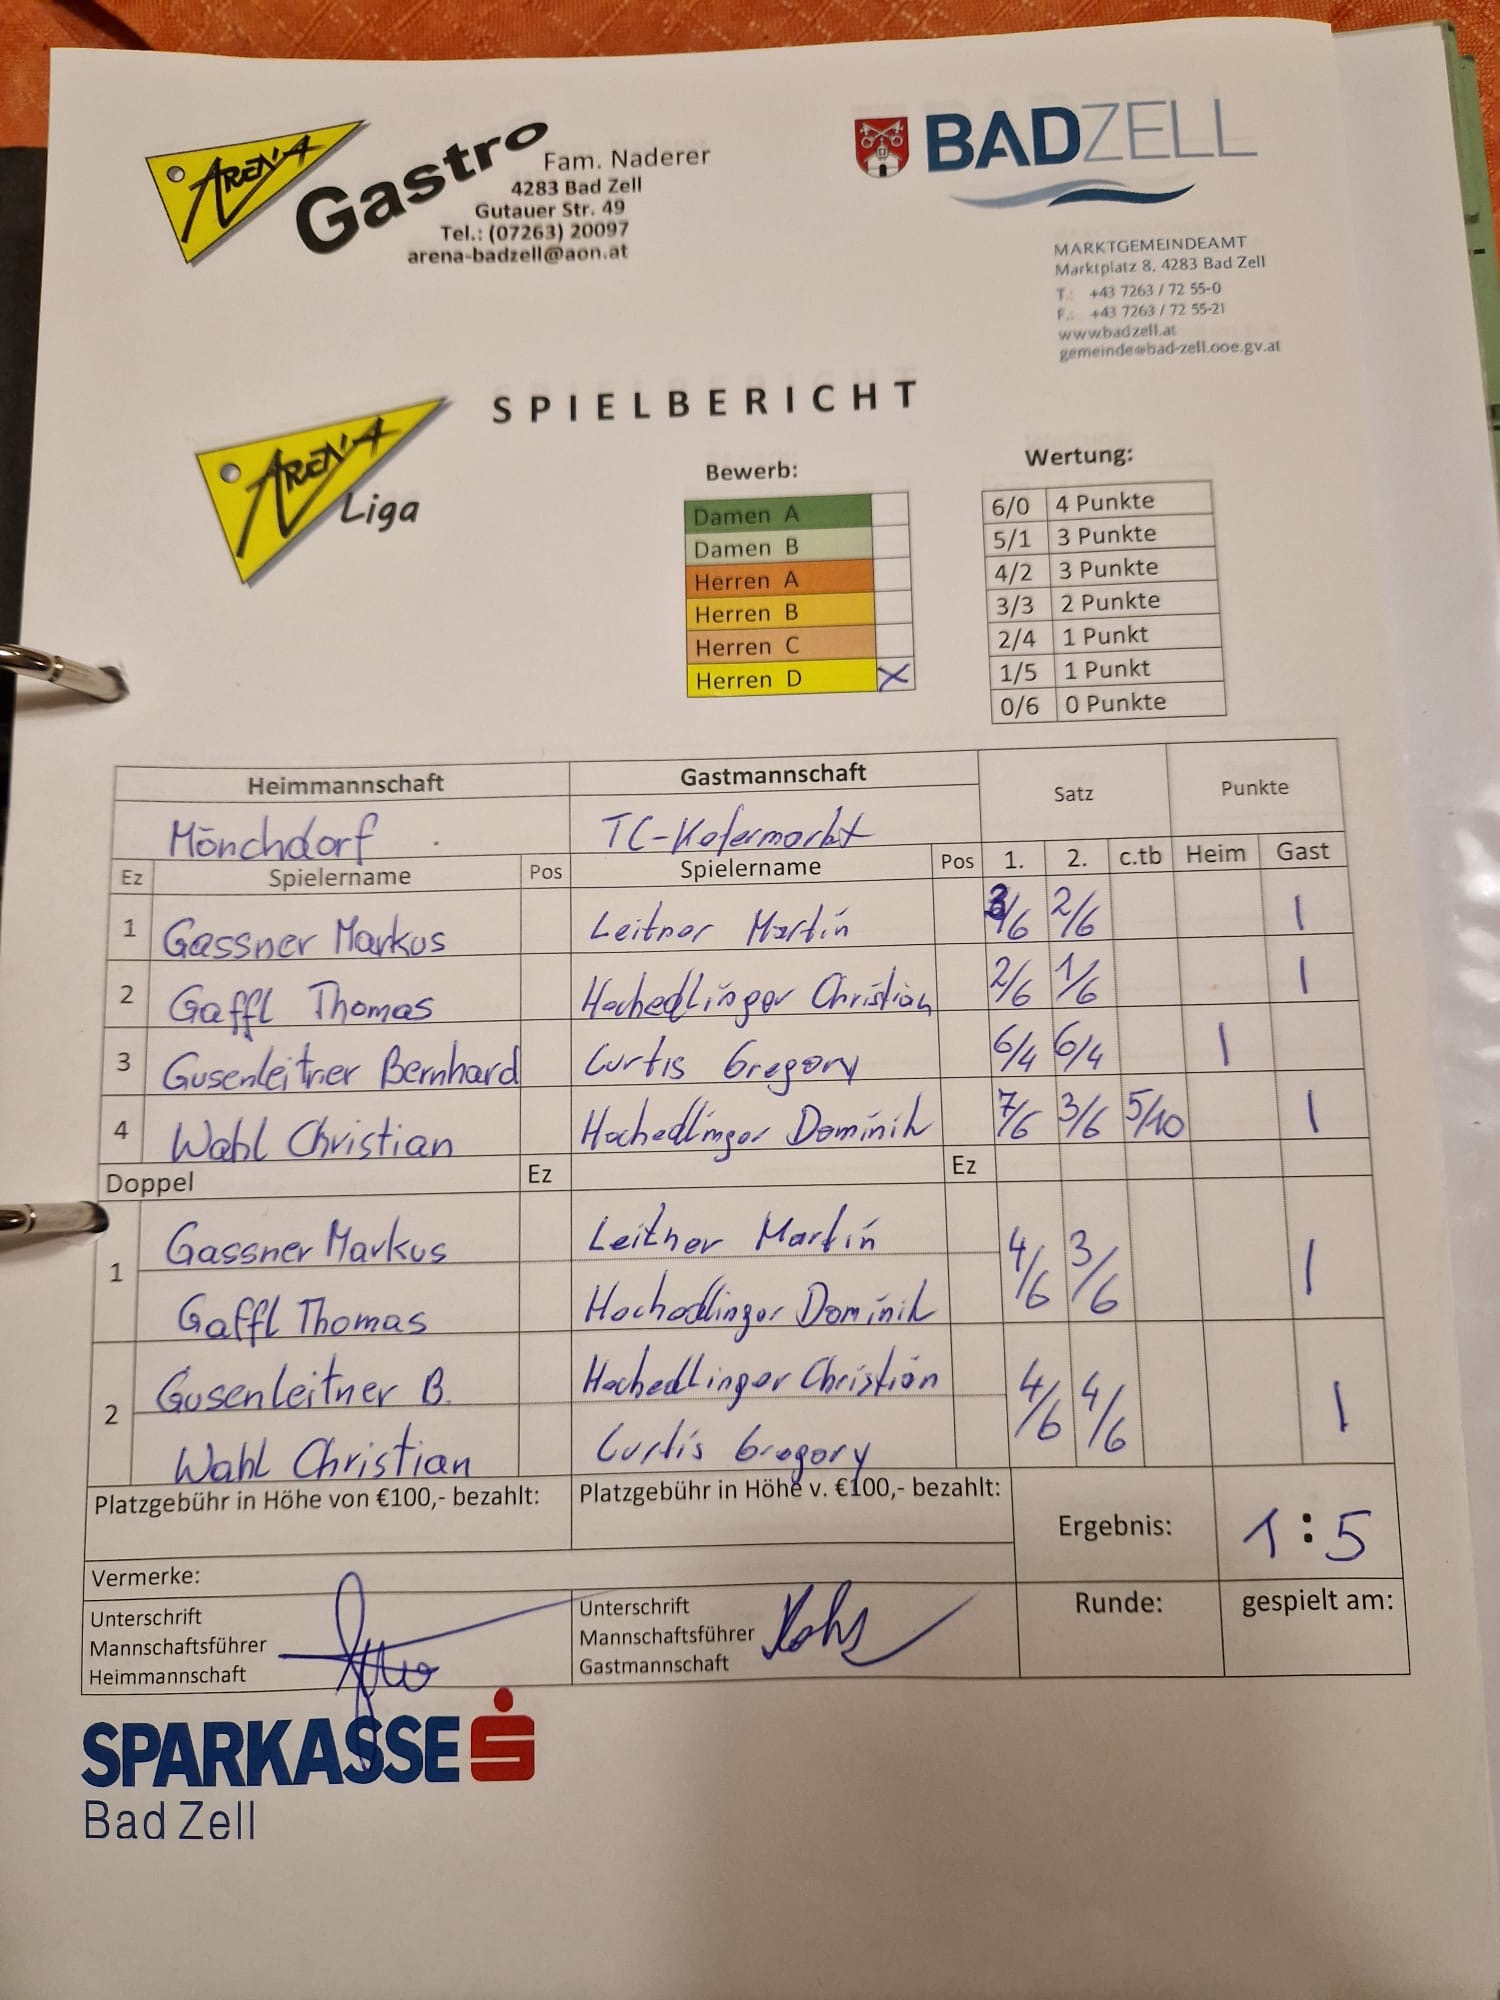 ARENA Gastro
Fam. Naderer
4283 Bad Zell
Gutauer Str. 49
Tel.: (07263) 20097
arena-badzell@aon.at
BADZELL
MARKTGEMEINDEAMT
Marktplatz 8, 4283 Bad Zell
T.: +43 7263 / 72 55-0
F.: +43 7263 / 72 55-21
www.badzell.at
gemeinde@bad-zell.ooe.gv.at
SPIELBERICHT
ARENA Liga
Bewerb:
Damen A
Damen B
Herren A
Herren B
Herren C
Herren D X
Wertung:
6/0 4 Punkte
5/1 3 Punkte
4/2 3 Punkte
3/3 2 Punkte
2/4 1 Punkt
1/5 1 Punkt
0/6 0 Punkte
Heimmannschaft Gastmannschaft Satz Punkte
Mönchdorf TC-Kefermarkt
Ez Spielername Pos Spielername Pos 1. 2. c.tb Heim Gast
1 Gassner Markus Leitner Martin 3/6 2/6 1
2 Gaffl Thomas Hochedlinger Christian 2/6 1/6 1
3 Gusenleitner Bernhard Curtis Gregory 6/4 6/4 1
4 Wahl Christian Hochedlinger Dominik 7/6 3/6 5/10 1
Doppel Ez Ez
1 Gassner Markus Leitner Martin 4/6 3/6 1
Gaffl Thomas Hochedlinger Dominik
2 Gusenleitner B. Hochedlinger Christian 4/6 4/6 1
Wahl Christian Curtis Gregory
Platzgebühr in Höhe von €100,- bezahlt: Platzgebühr in Höhe v. €100,- bezahlt:
Ergebnis: 1:5
Vermerke:
Unterschrift Mannschaftsführer Heimmannschaft
Unterschrift Mannschaftsführer Gastmannschaft
Runde: gespielt am:
SPARKASSE
Bad Zell